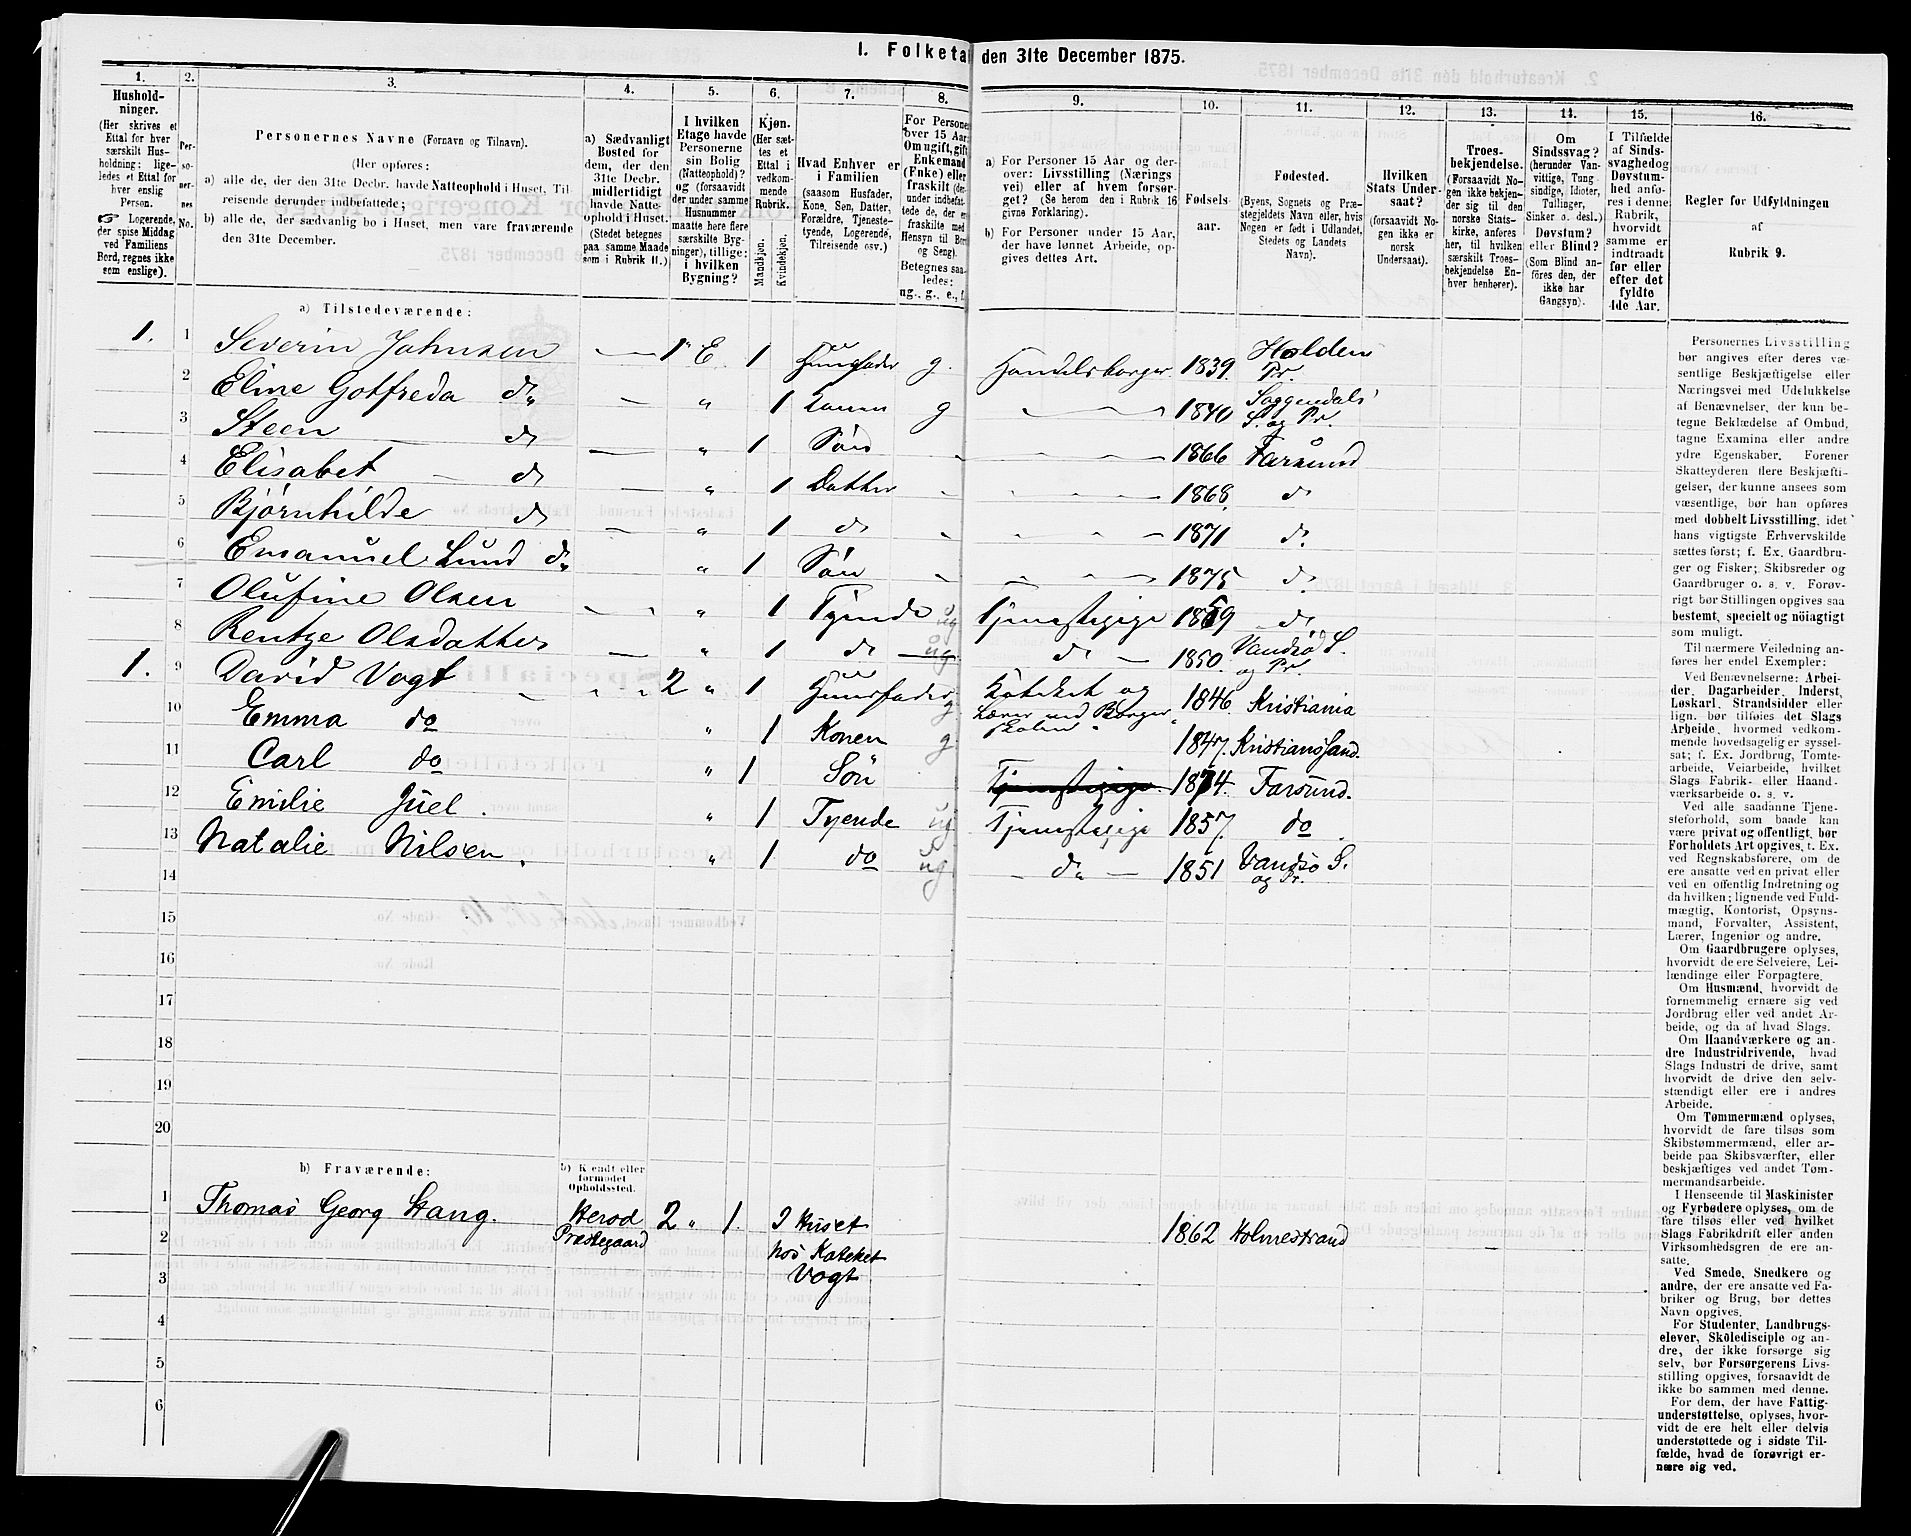 I. Folketa den 31te December 1875.
1. 2. 3. 4. 5. 6. 7. 8. 9. 10. 11. 12. 13. 14. 15. 16.
Hushold-
ninger.
(Her skrives et
Ettal for hver
særskilt Hus-
holdning; lige-
ledes et Ettal for
hver enslig
Person.
☞ Logerende,
der spise Middag
ved Familiens
Bord, regnes ikke
som enslige).
Per-
so-
ner-
nes
No.
Personernes Navne (Fornavn og Tilnavn).
(Her opføres:
a) alle de, der den 31te Decbr. havde Natteophold i Huset, Til-
reisende derunder indbefattede;
b) alle de, der sædvanlig bo i Huset, men vare fraværende
den 31te December.
a) Sædvanligt
Bosted for
dem, der den
31te Decbr.
midlertidigt
havde Natte-
ophold i Huset.
(Stedet betegnes
paa samme Maade
som i Rubrik 11.)
I hvilken
Etage havde
Personerne
sin Bolig
(Natteophold)?
og (forsaavidt
der under samme
Husnummer
maatte høre flere
særskilte Byg-
ninger), tillige:
i hvilken
Bygning?
Kjøn.
(Her sæt-
tes et
Ettal i
vedkom-
mende
Rubrik.
Mandkjøn.
Kvindekjøn.
Hvad Enhver er
i Familien
(saasom Husfader,
Kone, Søn, Datter,
Forældre, Tjeneste-
tyende, Logerende,
Tilreisende osv.)
For Persone
over 15 Aar
Om ugift, gift
Enkemand
(Enke) eller
fraskilt (der
under indbefat-
tede de, der er
fraskilte med
Hensyn til Bor
og Seng).
Betegnes saa-
ledes:
ug., g., e., f.
a) For Personer 15 Aar og der-
over: Livsstilling (Nærings
vei) eller af hvem forsør-
get? (Se herom den i Rubrik 16
givne Forklaring).
b) For Personer under 15 Aar,
der have lønnet Arbeide, op-
gives dettes Art.
Fødsels-
aar.
Fødested.
(Byens, Sognets og Præ-
stegjeldets Navn eller, hvis
Nogen er født i Udlandet,
Stedets og Landets
Navn).
Hvilken
Stats Under-
saat?
(forsaavidt No-
gen ikke er
norsk
Undersaat).
Troes-
bekjendelse.
(Forsaavidt No-
gen ikke bekjen-
der sig til den
norske Stats-
kirke, anføres
her, til hvilken
særskilt Troes-
bekjendelse En-
hver henhører).
Om
Sindssvag?
(herunder Van-
vittige, Tung
sindige, Idioter,
Tullinger,
Sinker o. desl.)
Døvstum?
eller Blind?
(Som Blind an-
føres den, der
ikke har
Gangsyn).
I Tilfælde
af Sinds-
svaghed og
Døvstum-
hed anfø-
res i denne
Rubrik,
hvorvidt
samme er
indtraadt
før eller
efter det
fyldte
4de Aar.
Regler for Udfyldningen
af
Rubrik 9.
a) Tilstedeværende:
1. 1 Severin Jahnsen — 1ste E 1 Huusfader g. Handelsborger 1839. Holden Pr.
2 Eline Gotfreda do " 1 Konen g 1840 Soggendals S. og Pr.
3 Steen — do " 1 Søn 1866 Farsund
4 Elisabet — do " 1 Datter 1868. do
5 Bjørnhilde do " 1 do 1871 do
6 Emanuel Lund do " 1 Søn 1875 do
7 Olufine Olsen " 1 Tyende ug Tjenestepige 1859 do
8 Rentze Olsdatter " 1 do ug do — 1850. Vandsø S. og Pr.
1. 9 David Vogt 2 " 1 Huusfader g. Kateket og Lærer ved Borger skolen 1846. Kristiania
10 Emma do " 1 Konen g 1847. Kristianssand.
11 Carl do " 1 Søn Tjenestepige 1874. Farsund.
12 Emilie Juel. " 1 Tyende ug Tjenestepige 1857. do
13 Natalie Nilsen. " 1 do ug — do — 1851 Vandsø S. og Pr.
14
15
16
17
18
19
20
b) Fraværende:
b) Kjendt eller
formodet
Opholdssted.
1 Thomas Georg Stang. Herod Præstegaard 2 " 1 I Huset hos Kateket Vogt 1862 Holmestrand
2
3
4
5
6
Personernes Livsstilling
bør angives efter deres væ-
sentlige Beskjæftigelse eller
Næringsvei med Udelukkelse
af Benævnelser, der kun be-
tegne Beklædelse af Ombud,
tagne Examina eller andre
ydre Egenskaber. Forener
Skatteyderen flere Beskjæfti-
gelser, der kunne ansees som
væsentlige, bør han opføres
med dobbelt Livsstilling, idet
hans vigtigste Erhvervskilde
sættes først; f. Ex. Gaardbru-
ger og Fisker; Skibsreder og
Gaardbruger o. s. v. Forøv-
rigt bør Stillingen opgives saa
bestemt, specielt og nöiagtigt
som muligt.
Til nærmere Veiledning an-
føres her endel Exempler:
Ved Benævnelserne: Arbei-
der, Dagarbeider, Inderst,
Løskarl, Strandsidder eller
lign. bør tilføies det Slags
Arbeide, hvormed vedkom-
mende hovedsagelig er syssel-
sat; f. Ex. Jordbrug, Tomte-
arbeide, Veiarbeide, hvilket
Slags Fabrik- eller Haand-
værksarbeide o. s. v.
Ved alle saadanne Tjene-
steforhold, som baade kan
være privat og offentligt, bør
Forholdets Art opgives, t. Ex.
ved Regnskabsførere, om de
ere ansatte ved en privat eller
ved en offentlig Indretning og
da hvilken; lignende ved Fuld-
mægtig, Kontorist, Opsyns-
mand, Forvalter, Assistent,
Lærer, Ingeniør og andre.
Om Gaardbrugere oplyses,
hvorvidt de ere Selveiere, Lei-
lændinge eller Forpagtere.
Om Husmænd, hvorvidt de
fornemmelig ernære sig ved
Jordbrug eller ved andet Ar-
beide, og da af hvad Slags.
Om Haandværkere og an-
dre Industridrivende, hvad
Slags Industri de drive, samt
hvorvidt de drive den selv-
stændigt eller ere i andres
Arbeide.
Om Tømmermænd oplyses,
hvorvidt de fare tilsøs som
Skibstømmermænd, eller ar-
beide paa Skibsværfter, eller
beskjæftiges ved andet Töm-
mermandsarbeide.
I Henseende til Maskinister
og Fyrbødere oplyses, om de
fare tilsøs eller ved hvilket
Slags Fabrikdrift eller anden
Virksomhedsgren de ere an-
satte.
Ved Smede, Snedkere og
andre, der ere ansatte ved Fa-
briker og Brug, bør dettes
Navn opgives.
For Studenter, Landbrugs-
elever, Skoledisciple og an-
dre, der ikke forsørge sig
selv, bør Forsørgerens Livs-
stilling opgives, forsaavidt de
ikke bo sammen med denne.
For dem, der have Fattig-
understøttelse, oplyses, hvor-
vidt de ere helt eller delvis
understøttede og i sidste Til-
fælde, hvad de forøvrigt er-
nære sig ved.